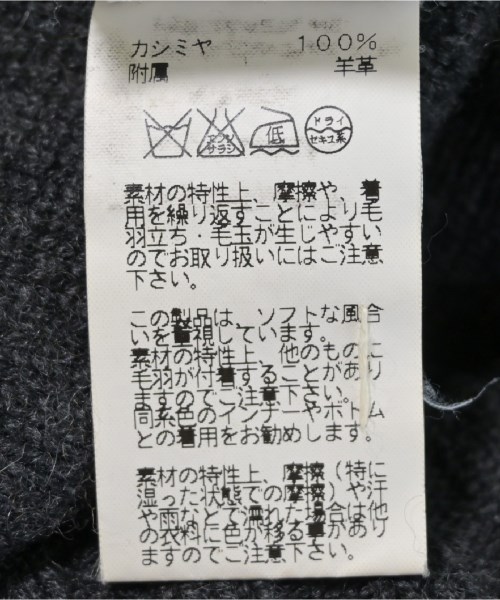 カシミヤ 100%
附属 羊革
エンソ
サラシ
低
ドライ
セキユ系
素材の特性上、摩擦や、着
用を繰り返すことにより毛
羽立ち・毛玉が生じやすい
のでお取り扱いにはご注意
下さい。
この製品は、ソフトな風合
いを重視しています。
素材の特性上、他のものに
毛羽が付着することがあり
ますのでご注意下さい。
同系色のインナーやボトム
との着用をお勧めします。
素材の特性上、摩擦(特に
湿った状態での摩擦)や汗
や雨などで濡れた場合は他
の衣料に色が移る事があり
ますのでご注意下さい。